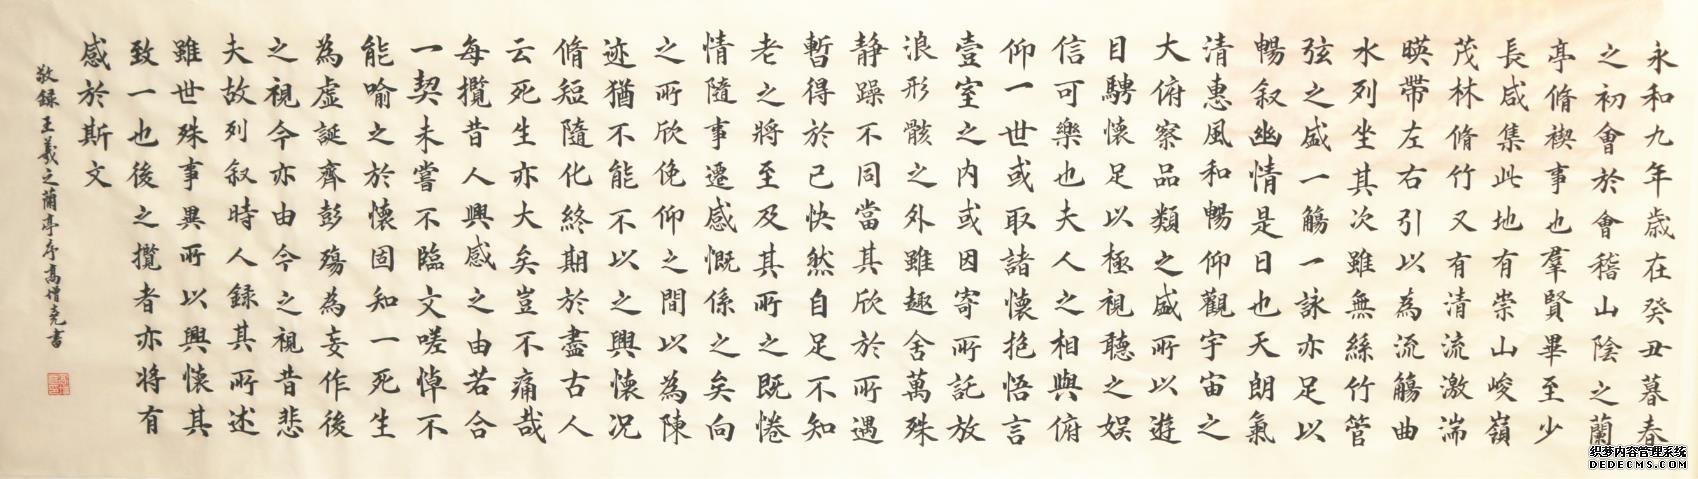 永和九年歲在癸丑暮春
之初會於會稽山陰之蘭
亭脩禊事也羣賢畢至少
長咸集此地有崇山峻嶺
茂林脩竹又有清流激湍
暎帶左右引以為流觴曲
水列坐其次雖無絲竹管
弦之盛一觴一詠亦足以
暢叙幽情是日也天朗氣
清惠風和暢仰觀宇宙之
大俯察品類之盛所以遊
目騁懷足以極視聽之娱
信可樂也夫人之相與俯
仰一世或取諸懷抱悟言
壹室之内或因寄所託放
浪形骸之外雖趣舍萬殊
静躁不同當其欣於所遇
暫得於己快然自足不知
老之將至及其所之既惓
情隨事遷感慨係之矣向
之所欣俛仰之間以為陳
迹猶不能不以之興懷况
脩短隨化終期於盡古人
云死生亦大矣豈不痛哉
每攬昔人興感之由若合
一契未嘗不臨文嗟悼不
能喻之於懷固知一死生
為虛誕齊彭殤為妄作後
之視今亦由今之視昔悲
夫故列叙時人録其所述
雖世殊事異所以興懷其
致一也後之攬者亦将有
感於斯文
敬録王羲之蘭亭序高增堯書
织梦内容管理系统
DEDECMS.COM